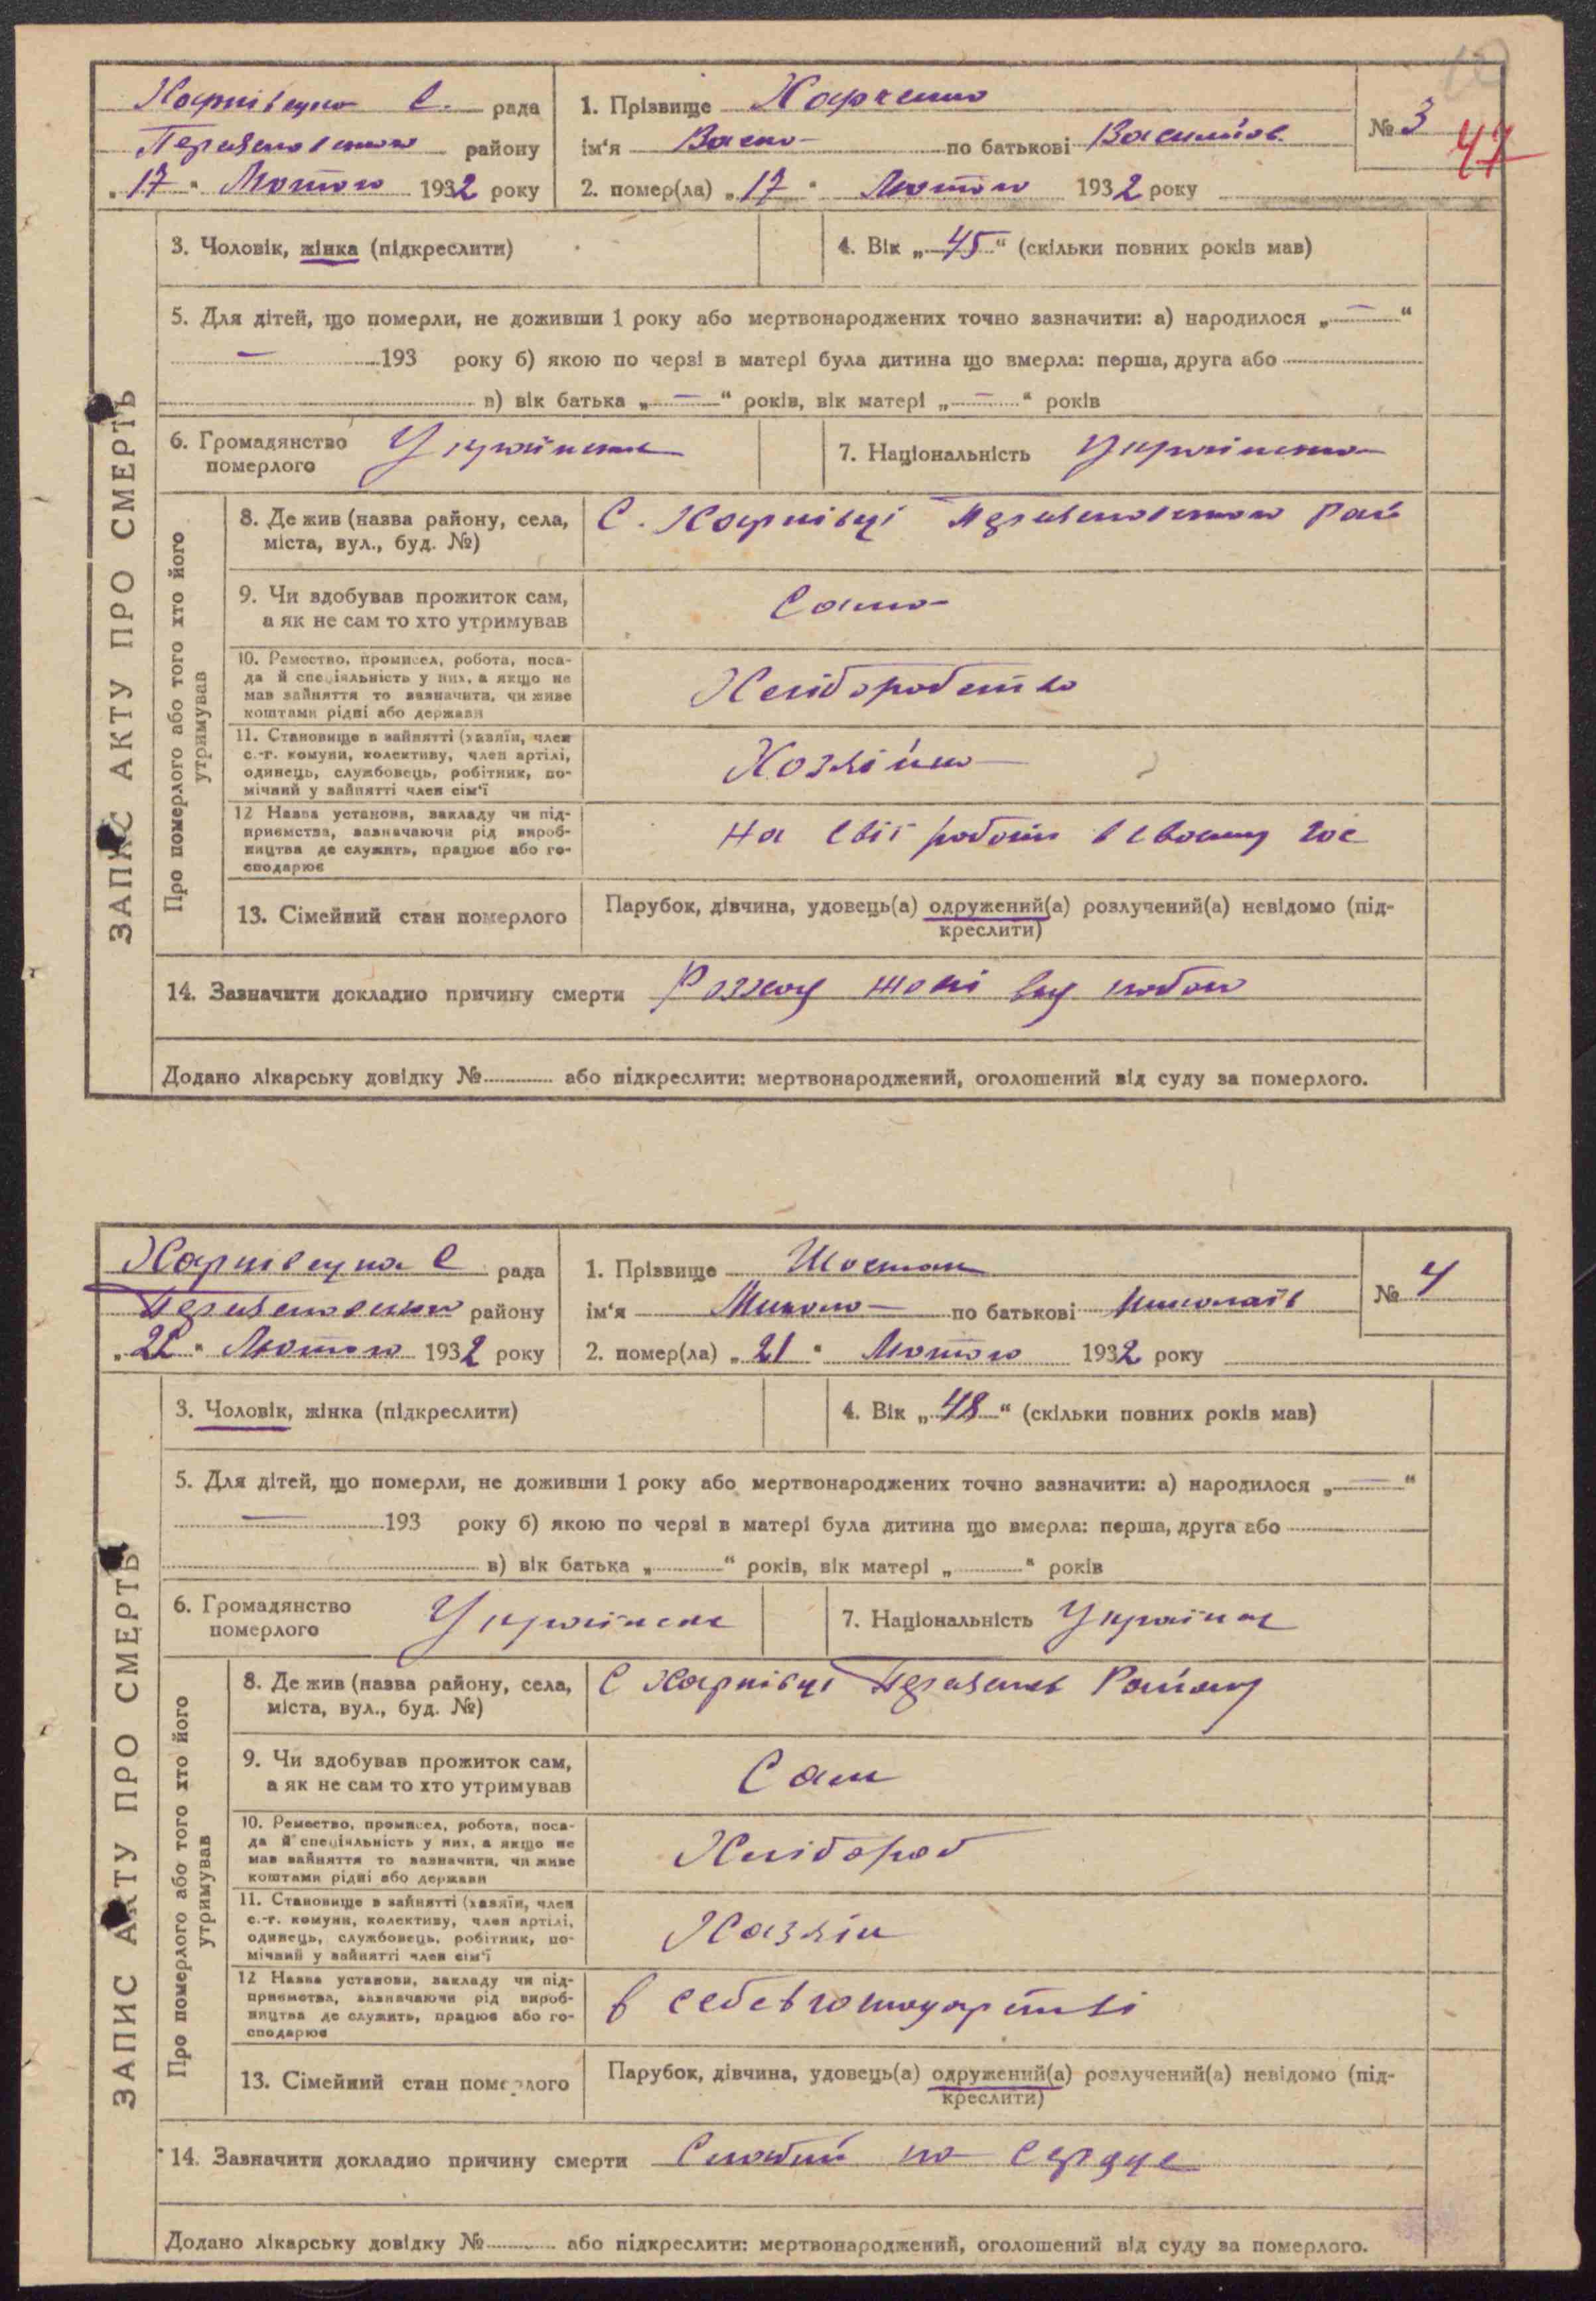 Харківецка С. рада
району
„17" Лютого 1932 року
1. Прізвище Харченко
ім'я по батькові Василіов.
2. помер(ла) „17" Лютого 1932 року
№ 3
47
3. Чоловік, жінка (підкреслити)
4. Вік „45" (скільки повних років мав)
5. Для дітей, що померли, не доживши 1 року або мертвонароджених точно зазначити: а) народилося „—"
— 193 року б) якою по черзі в матері була дитина що вмерла: перша, друга або
в) вік батька „—" років, вік матері „—" років
6. Громадянство померлого Українське
7. Національність Українка
ЗАПИС АКТУ ПРО СМЕРТЬ
Про померлого або того хто його утримував
8. Де жив (назва району, села,
міста, вул., буд. №)
С. Харківці Рай
9. Чи здобував прожиток сам,
а як не сам то хто утримував
Сама
10. Ремество, промисел, робота, поса-
да й спеціяльність у них, а якщо не
мав зайняття то зазначити, чи живе
коштами рідні або держави
Хліборобство
11. Становище в зайнятті (хазяїн, член
с.-г. комуни, колективу, член артілі,
одинець, службовець, робітник, по-
мічний у зайнятті член сім'ї
Хозяійка
12 Назва установи, закладу чи під-
приємства, зазначаючи рід вироб-
ництва де служить, працює або го-
сподарює
на свїї роботі в своєму гос
13. Сімейний стан померлого
Парубок, дівчина, удовець(а) одружений(а) розлучений(а) невідомо (під-
креслити)
14. Зазначити докладно причину смерти
Додано лікарську довідку № або підкреслити: мертвонароджений, оголошений від суду за померлого.
Харківецка С рада
району
„21" Лютого 1932 року
1. Прізвище Шостак
ім'я Микола по батькові Николаїв
2. помер(ла) „21" Лютого 1932 року
№ 4
3. Чоловік, жінка (підкреслити)
4. Вік „48" (скільки повних років мав)
5. Для дітей, що померли, не доживши 1 року або мертвонароджених точно зазначити: а) народилося „—"
— 193 року б) якою по черзі в матері була дитина що вмерла: перша, друга або
в) вік батька „ " років, вік матері „ " років
6. Громадянство померлого Українск
7. Національність Українец
ЗАПИС АКТУ ПРО СМЕРТЬ
Про померлого або того хто його утримував
8. Де жив (назва району, села,
міста, вул., буд. №)
С Харківці Району
9. Чи здобував прожиток сам,
а як не сам то хто утримував
Сам
10. Ремество, промисел, робота, поса-
да й спеціяльність у них, а якщо не
мав зайняття то зазначити, чи живе
коштами рідні або держави
Хлібороб
11. Становище в зайнятті (хазяїн, член
с.-г. комуни, колективу, член артілі,
одинець, службовець, робітник, по-
мічний у зайнятті член сім'ї
Хазяїн
12 Назва установи, закладу чи під-
приємства, зазначаючи рід вироб-
ництва де служить, працює або го-
сподарює
в себе в господарстві
13. Сімейний стан померлого
Парубок, дівчина, удовець(а) одружений(а) розлучений(а) невідомо (під-
креслити)
14. Зазначити докладно причину смерти Слабий на сердце
Додано лікарську довідку № або підкреслити: мертвонароджений, оголошений від суду за померлого.